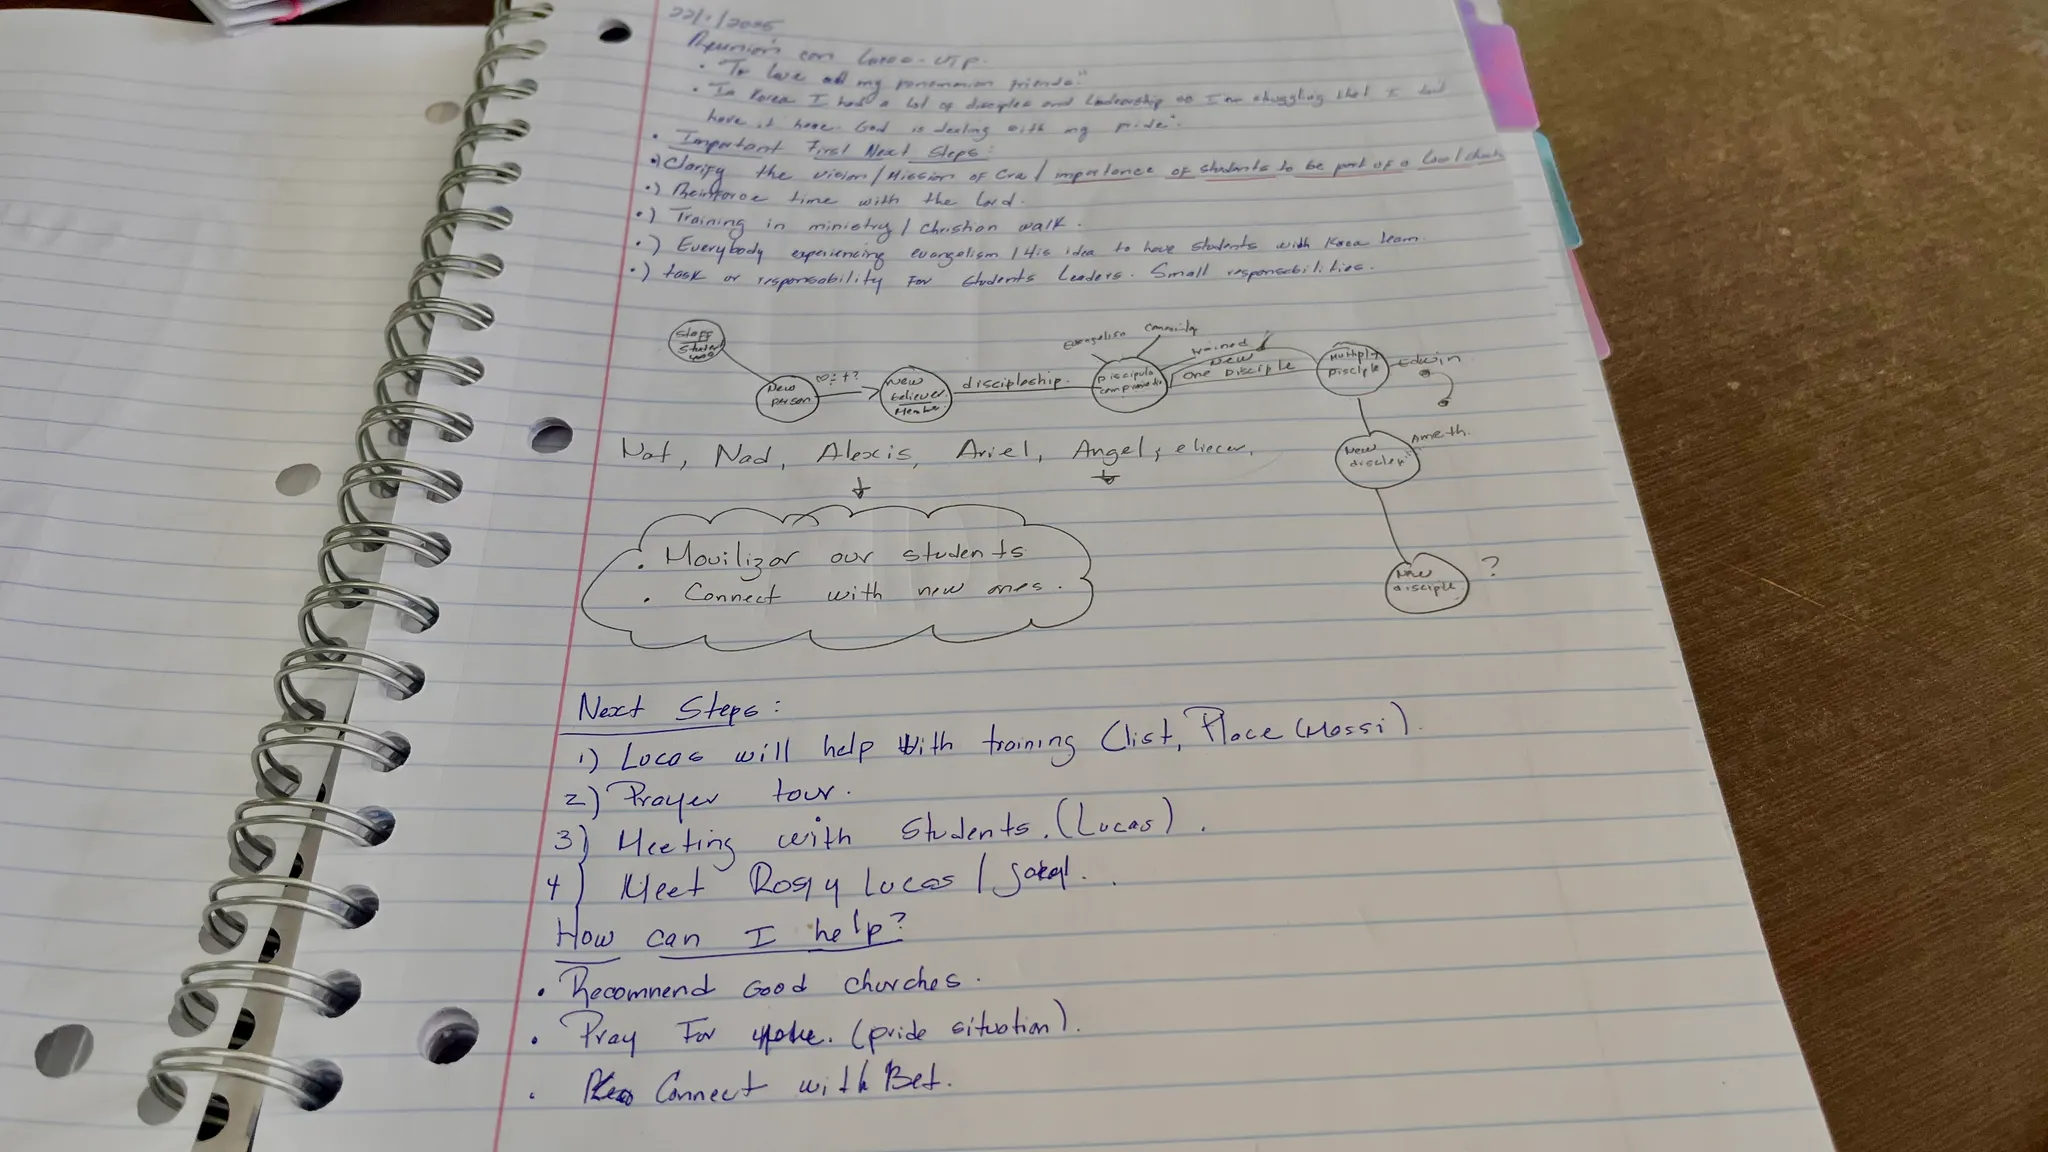 Reunión con Lucas - UTP.
• "To love all my panamanian friends."
• In Korea I had a lot of disciples and leadership so I'm struggling that I don't
have it here. God is dealing with my pride".
• Important First Next Steps:
•) Clarify the vision/Mission of Cru / importance of students to be part of a local church
•) Reinforce time with the Lord.
•) Training in ministry / Christian walk.
•) Everybody experiencing evangelism / His idea to have students with Korea team.
•) task or responsability for students Leaders. Small responsabilities.
Staff
Student
New
person
New
believer
Member
discipleship.
Evangelism
Community
Discipulo
trained
New
One Disciple
Multiply
Disciple
Edwin
New
disciple
Ameth.
New
disciple
?
Nat, Nad, Alexis, Ariel, Angel, eliecer.
• Movilizar our students
• Connect with new ones.
Next Steps:
1) Lucas will help with training (list, Place (Massi).
2) Prayer tour.
3) Meeting with students. (Lucas).
4) Meet Ros y Lucas /
How can I help?
• Recommend Good churches.
• Pray For (pride situation).
• Connect with Bet.